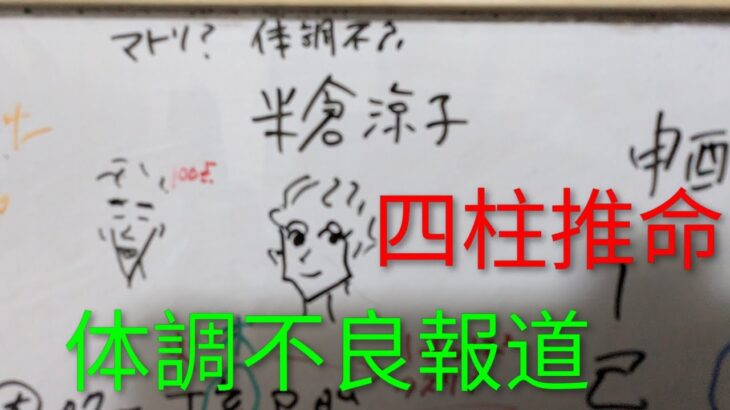 マトリ? 体調不良
半倉涼子
申酉
100点
四柱推命
体調不良報道
己